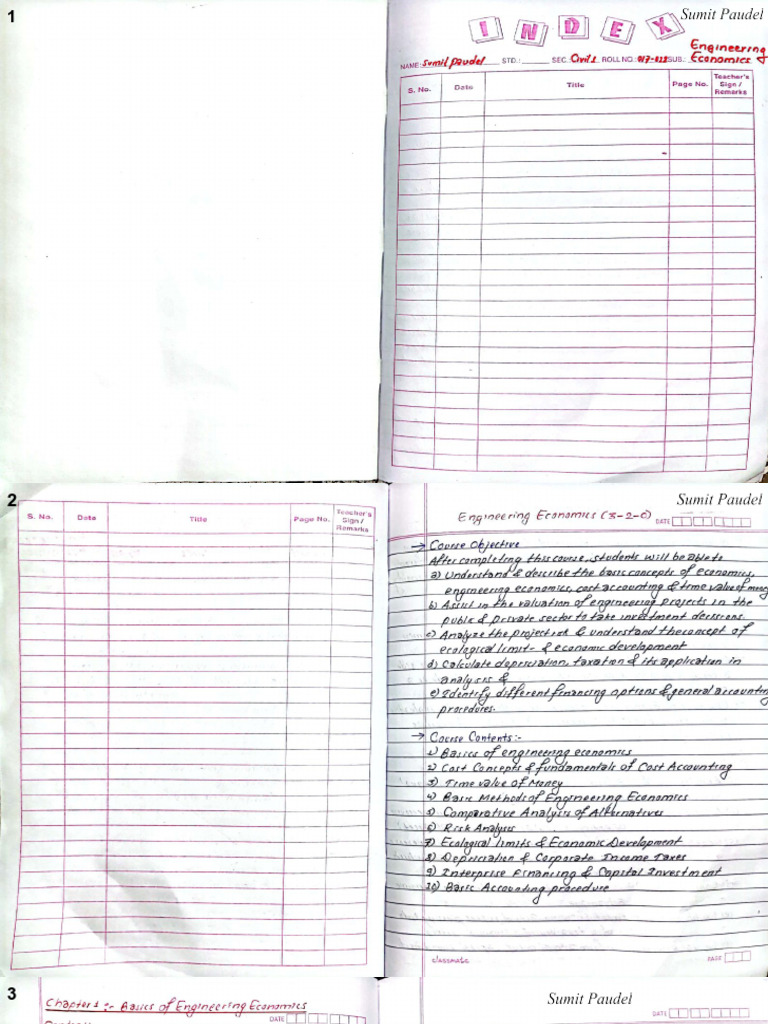 1
Sumit Paudel
INDEX
Engineering
NAME: Sumit Paudel STD.: SEC. Civil 1 ROLL NO.: SUB. Economics
S. No. Date Title Page No. Teacher's Sign / Remarks
2
S. No. Date Title Page No. Teacher's Sign / Remarks
Sumit Paudel
Engineering Economics (3-2-0) DATE
→ Course Objective
After completing this course, students will be able to
a) Understand & describe the basic concepts of economics,
engineering economics, cost accounting & time value of money
b) Assist in the valuation of engineering projects in the
public & private sector to take investment decisions.
c) Analyze the project risk & understand the concept of
ecological limit & economic development
d) Calculate depreciation, taxation & its application in
analysis &
e) Identify different financing options & general accounting
procedures.
→ Course Contents:-
1) Basics of engineering economics
2) Cost Concepts & fundamentals of Cost Accounting
3) Time value of Money
4) Basic Methods of Engineering Economics
5) Comparative Analysis of Alternatives
6) Risk Analysis
7) Ecological limits & Economic Development
8) Depreciation & Corporate Income Taxes
9) Enterprise Financing & Capital Investment
10) Basic Accounting procedure
classmate PAGE
3
Chapter 1 :- Basics of Engineering Economics
DATE
Sumit Paudel
DATE